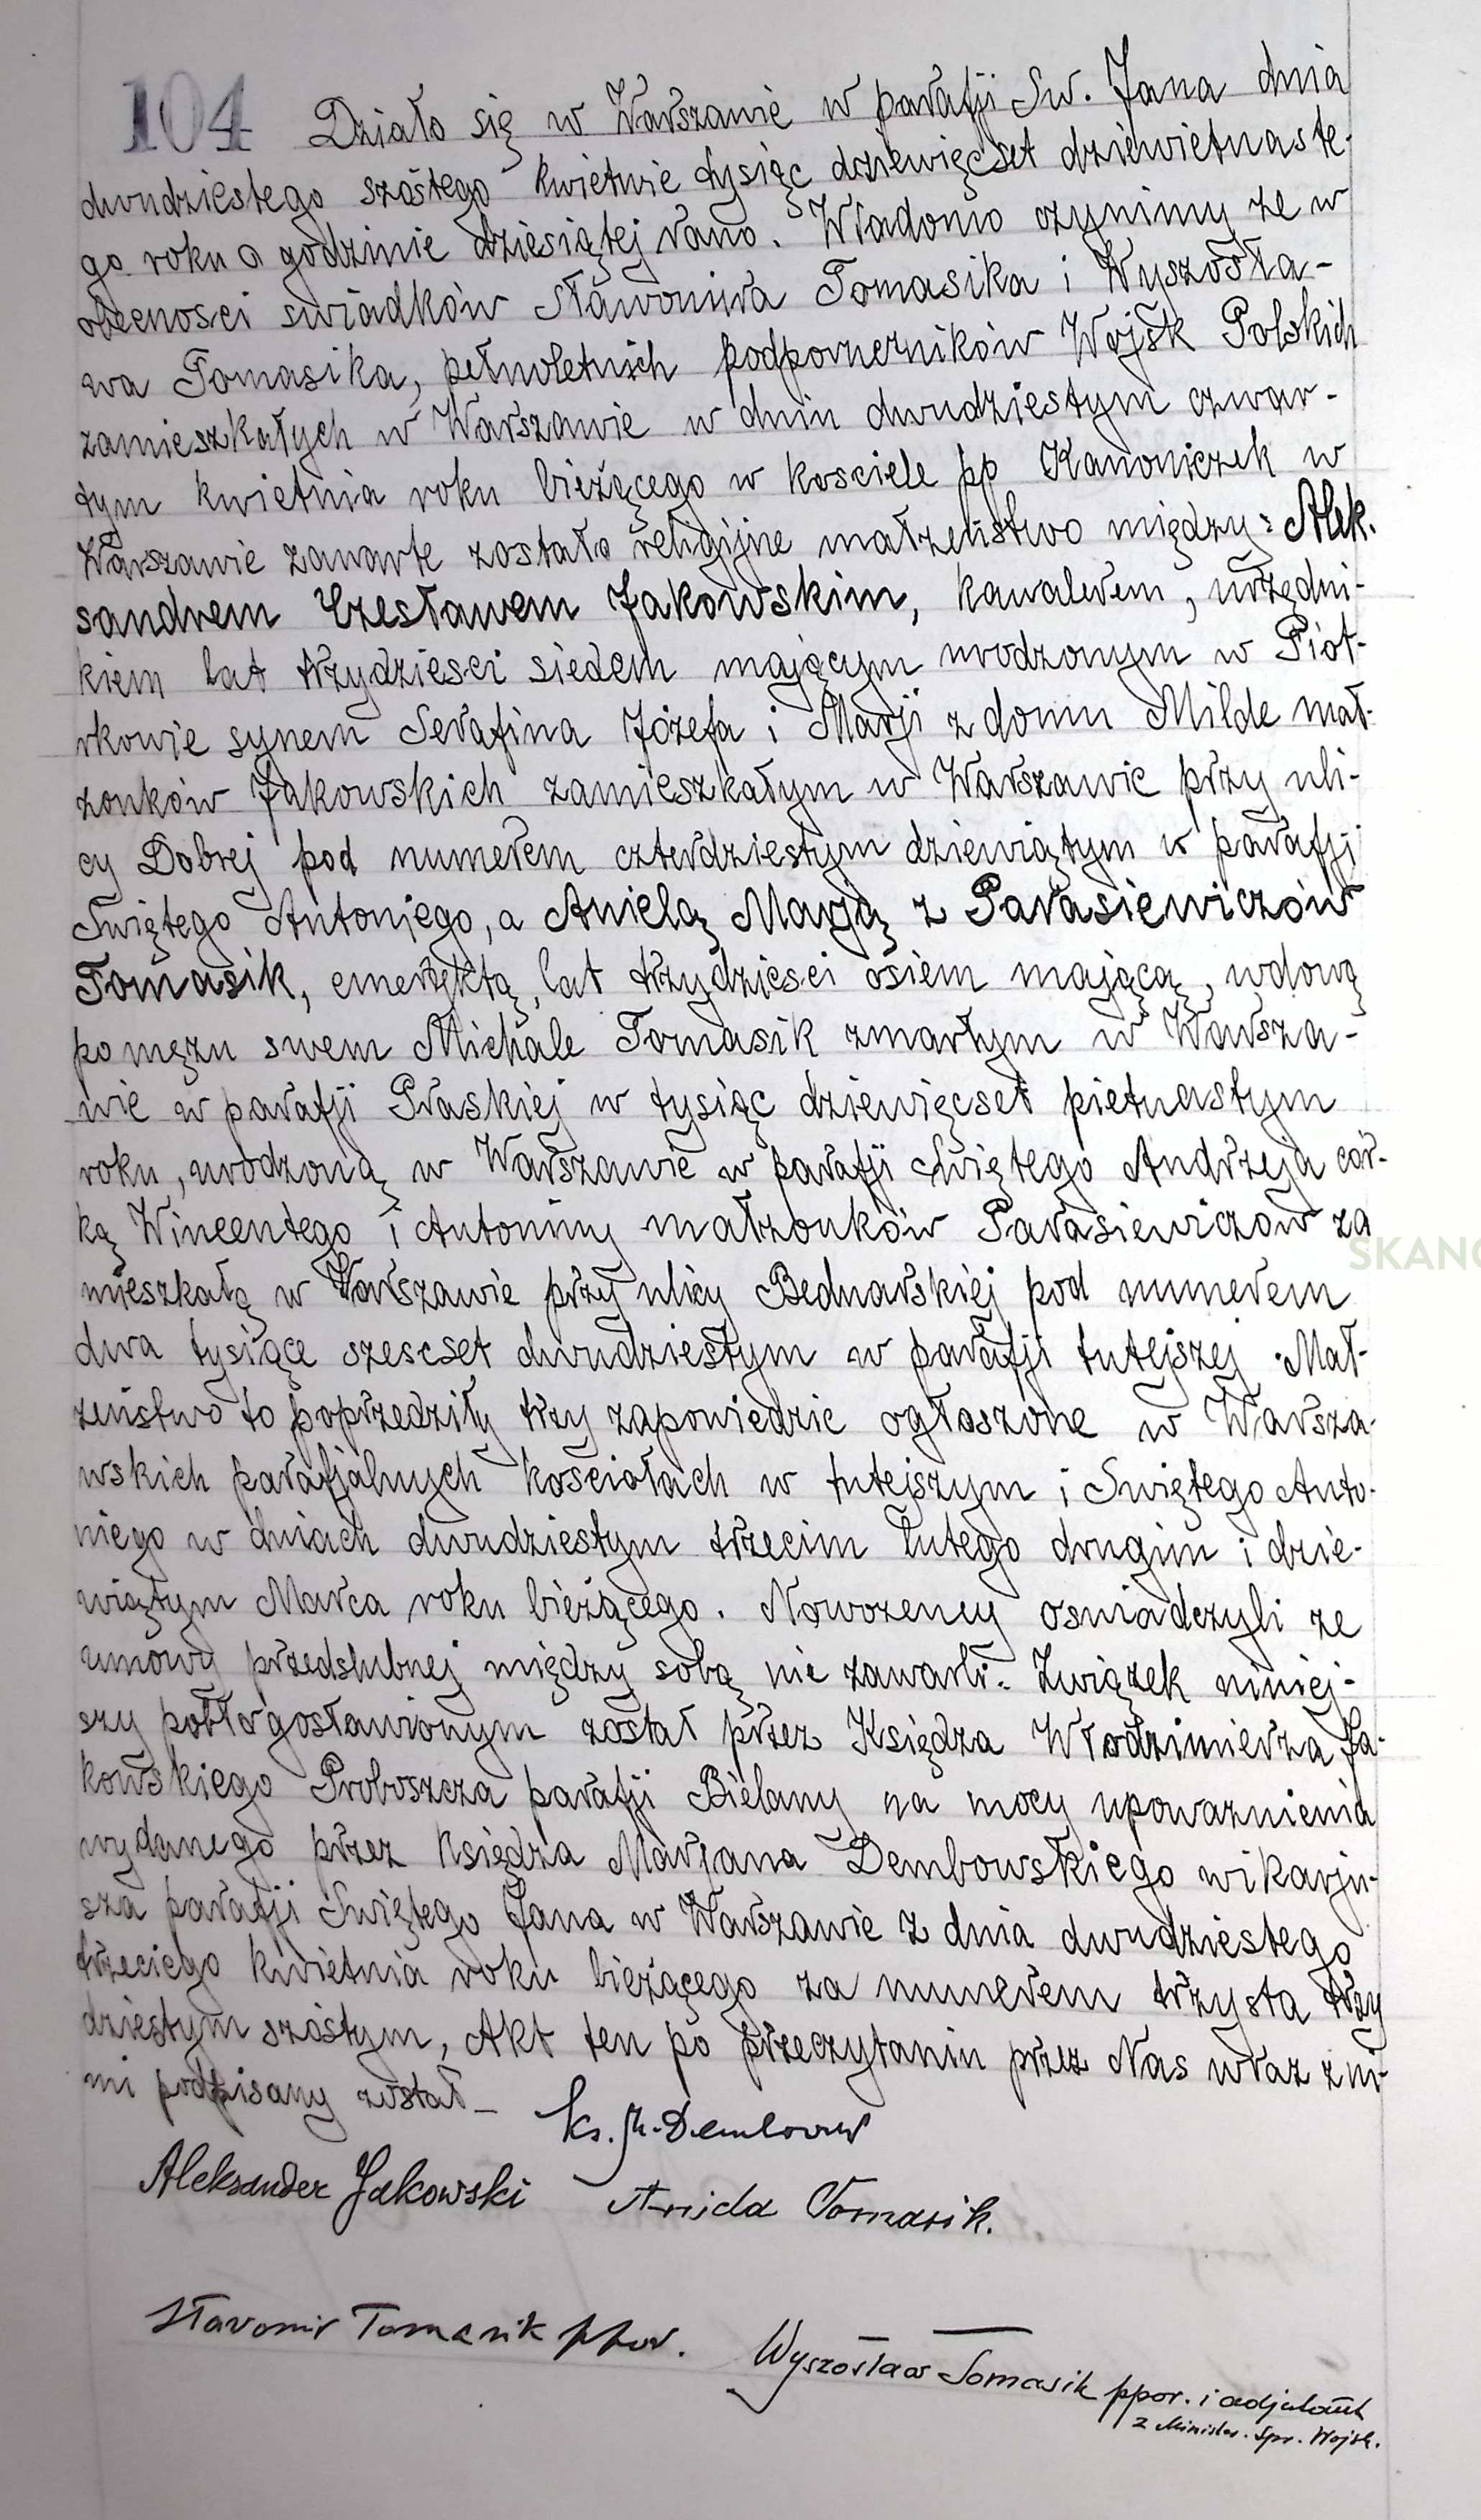 104 Działo się w Warszawie w parafji Sw. Jana dnia
dwudziestego szóstego kwietnie tysiąc dziewięcset dziewietnaste-
go roku o godzinie dziesiątej rano. Wiadomo czynimy ze w
obecnosci swiadków Sławomira Tomasika i Wyszosła-
wa Tomasika, pełnoletnich podporuczników Wojsk Polskich
zamieszkałych w Warszawie w dniu dwudziestym czwar-
tym kwietnia roku bieżącego w kosciele pp Kanoniczek w
Warszawie zawarte zostało religijne małzeństwo między: Alek.
sandrem Czesławem Jakowskim, kawalerem, urzędni-
kiem lat trzydziesci siedem mającym urodzonym w Piot-
rkowie synem Serafina Józefa i Marji z domu Milde mał-
zonków Jakowskich zamieszkałym w Warszawie przy uli-
cy Dobrej pod numerem czterdziestym dziewiątym w parafji
Swiętego Antoniego, a Anielą Marją z Parasiewiczów
Tomasik, emerytką, lat trzydziesci osiem mającą, wdową
po męzu swem Michale Tomasik zmarłym w Warsza-
wie w parafji Praskiej w tysiąc dziewięcset pietnastym
roku, urodzoną w Warszawie w parafji Swiętego Andrzeja cór-
ką Wincentego i Antoniny małzonków Parasiewiczów za
mieszkałą w Warszawie przy ulicy Bednarskiej pod numerem
dwa tysiące szescset dwudziestym w parafji tutejszej. Mał-
zeństwo to poprzedziły trzy zapowiedzie ogłoszone w Warsza-
wskich parafjalnych kościołach w tutejszym i Swiętego Anto-
niego w dniach dwudziestym trzecim lutego drugim i dzie-
wiątym Marca roku bieżącego. Nowozency osniadczyli ze
umowy przedslubnej między sobą nie zawarli. Związek niniej-
szy pobłogosławionym został przez Księdza Włodzimierza Ja-
kowskiego Proboszcza parafji Bielany na mocy upowaznienia
wydanego przez Księdza Marjana Dembowskiego wikarju-
sza parafji Swiętego Jana w Warszawie z dnia dwudziestego
trzeciego kwietnia roku bieżącego za numerem trzysta trzy
dziestym szóstym, Akt ten po przeczytaniu przez Nas wraz z ni-
mi podpisany został -
ks. M. Dembowski
Aleksander Jakowski Aniela Tomasik.
Sławomir Tomasik ppor.
Wyszosław Tomasik ppor. i adjutant
z Minister. Spr. Wojsk.
SKANO